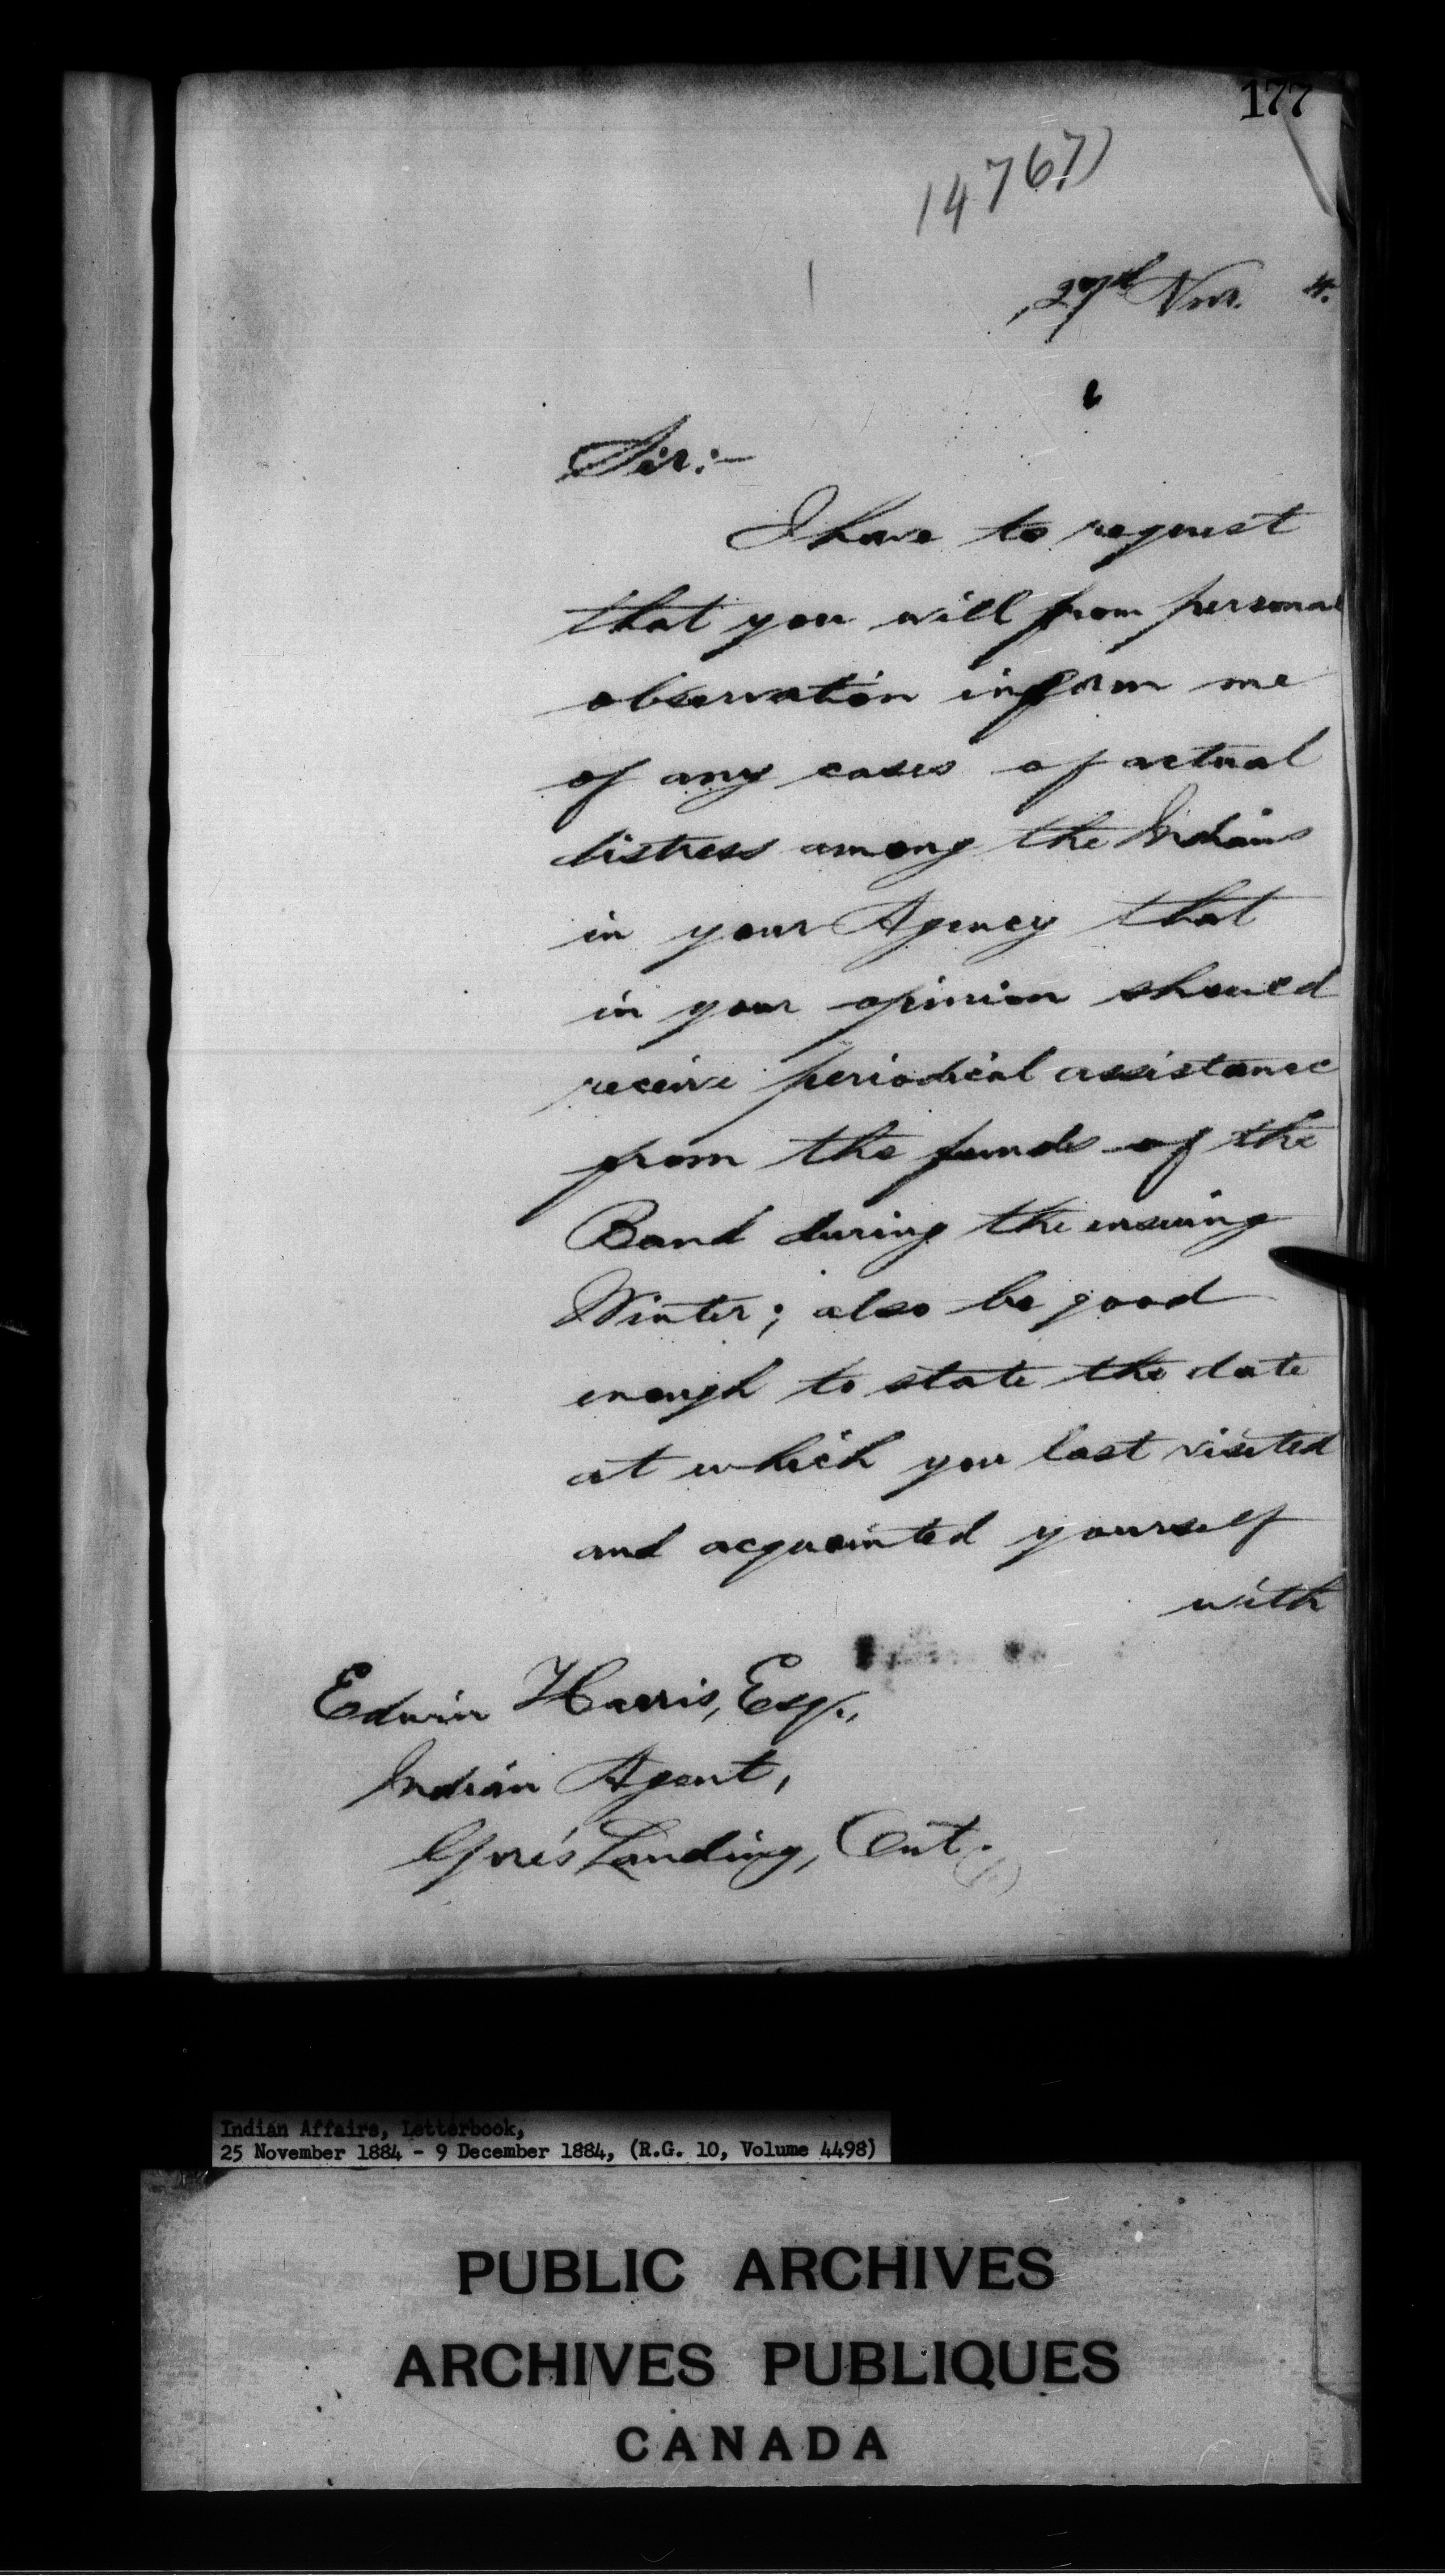 177
14767)
27th Nov. 4.
Sir:-
I have to request
that you will from personal
observation inform me
of any cases of actual
distress among the Indians
in your Agency that
in your opinion should
receive periodical assistance
from the funds of the
Band during the ensuing
Winter; also be good
enough to state the date
at which you last visited
and acquainted yourself
with
Edwin Harris, Esq.,
Indian Agent,
Gore's Landing, Ont.
Indian Affairs, Letterbook,
25 November 1884 - 9 December 1884, (R.G. 10, Volume 4498)
PUBLIC ARCHIVES
ARCHIVES PUBLIQUES
CANADA